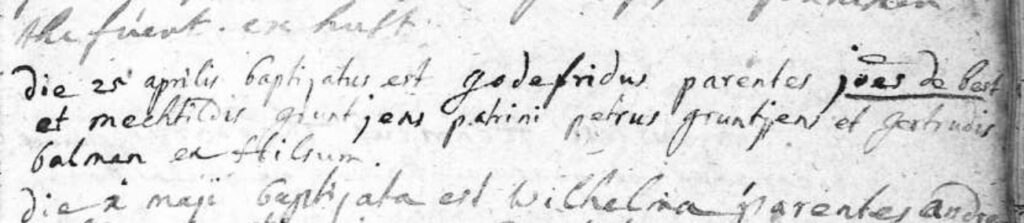 the fuent. ex hust.
die 25 aprilis baptizatus est godefridus parentes joes de best
et mechtildis gruntjens patrini petrus gruntjens et gertrudis
balman ex Hilsum.
die 2 maji baptizata est wilhelma parentes andre